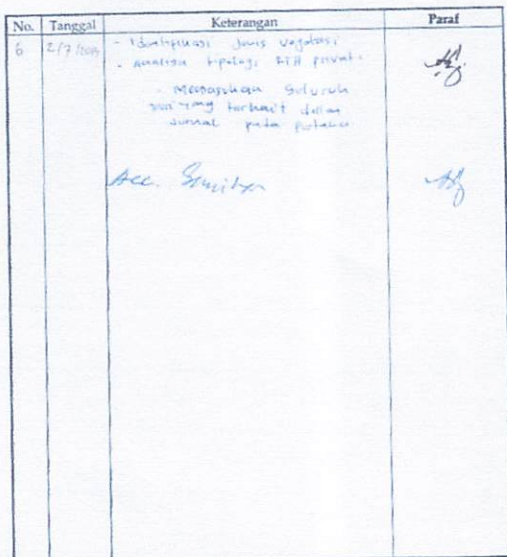 No. Tanggal Keterangan Paraf
6 2/7/2019 - Identifikasi Jenis vegetasi
- Analisa tipologi RTH privat.
- Memasukan Seluruh
yang terkait dalam
jurnal pada
Acc.